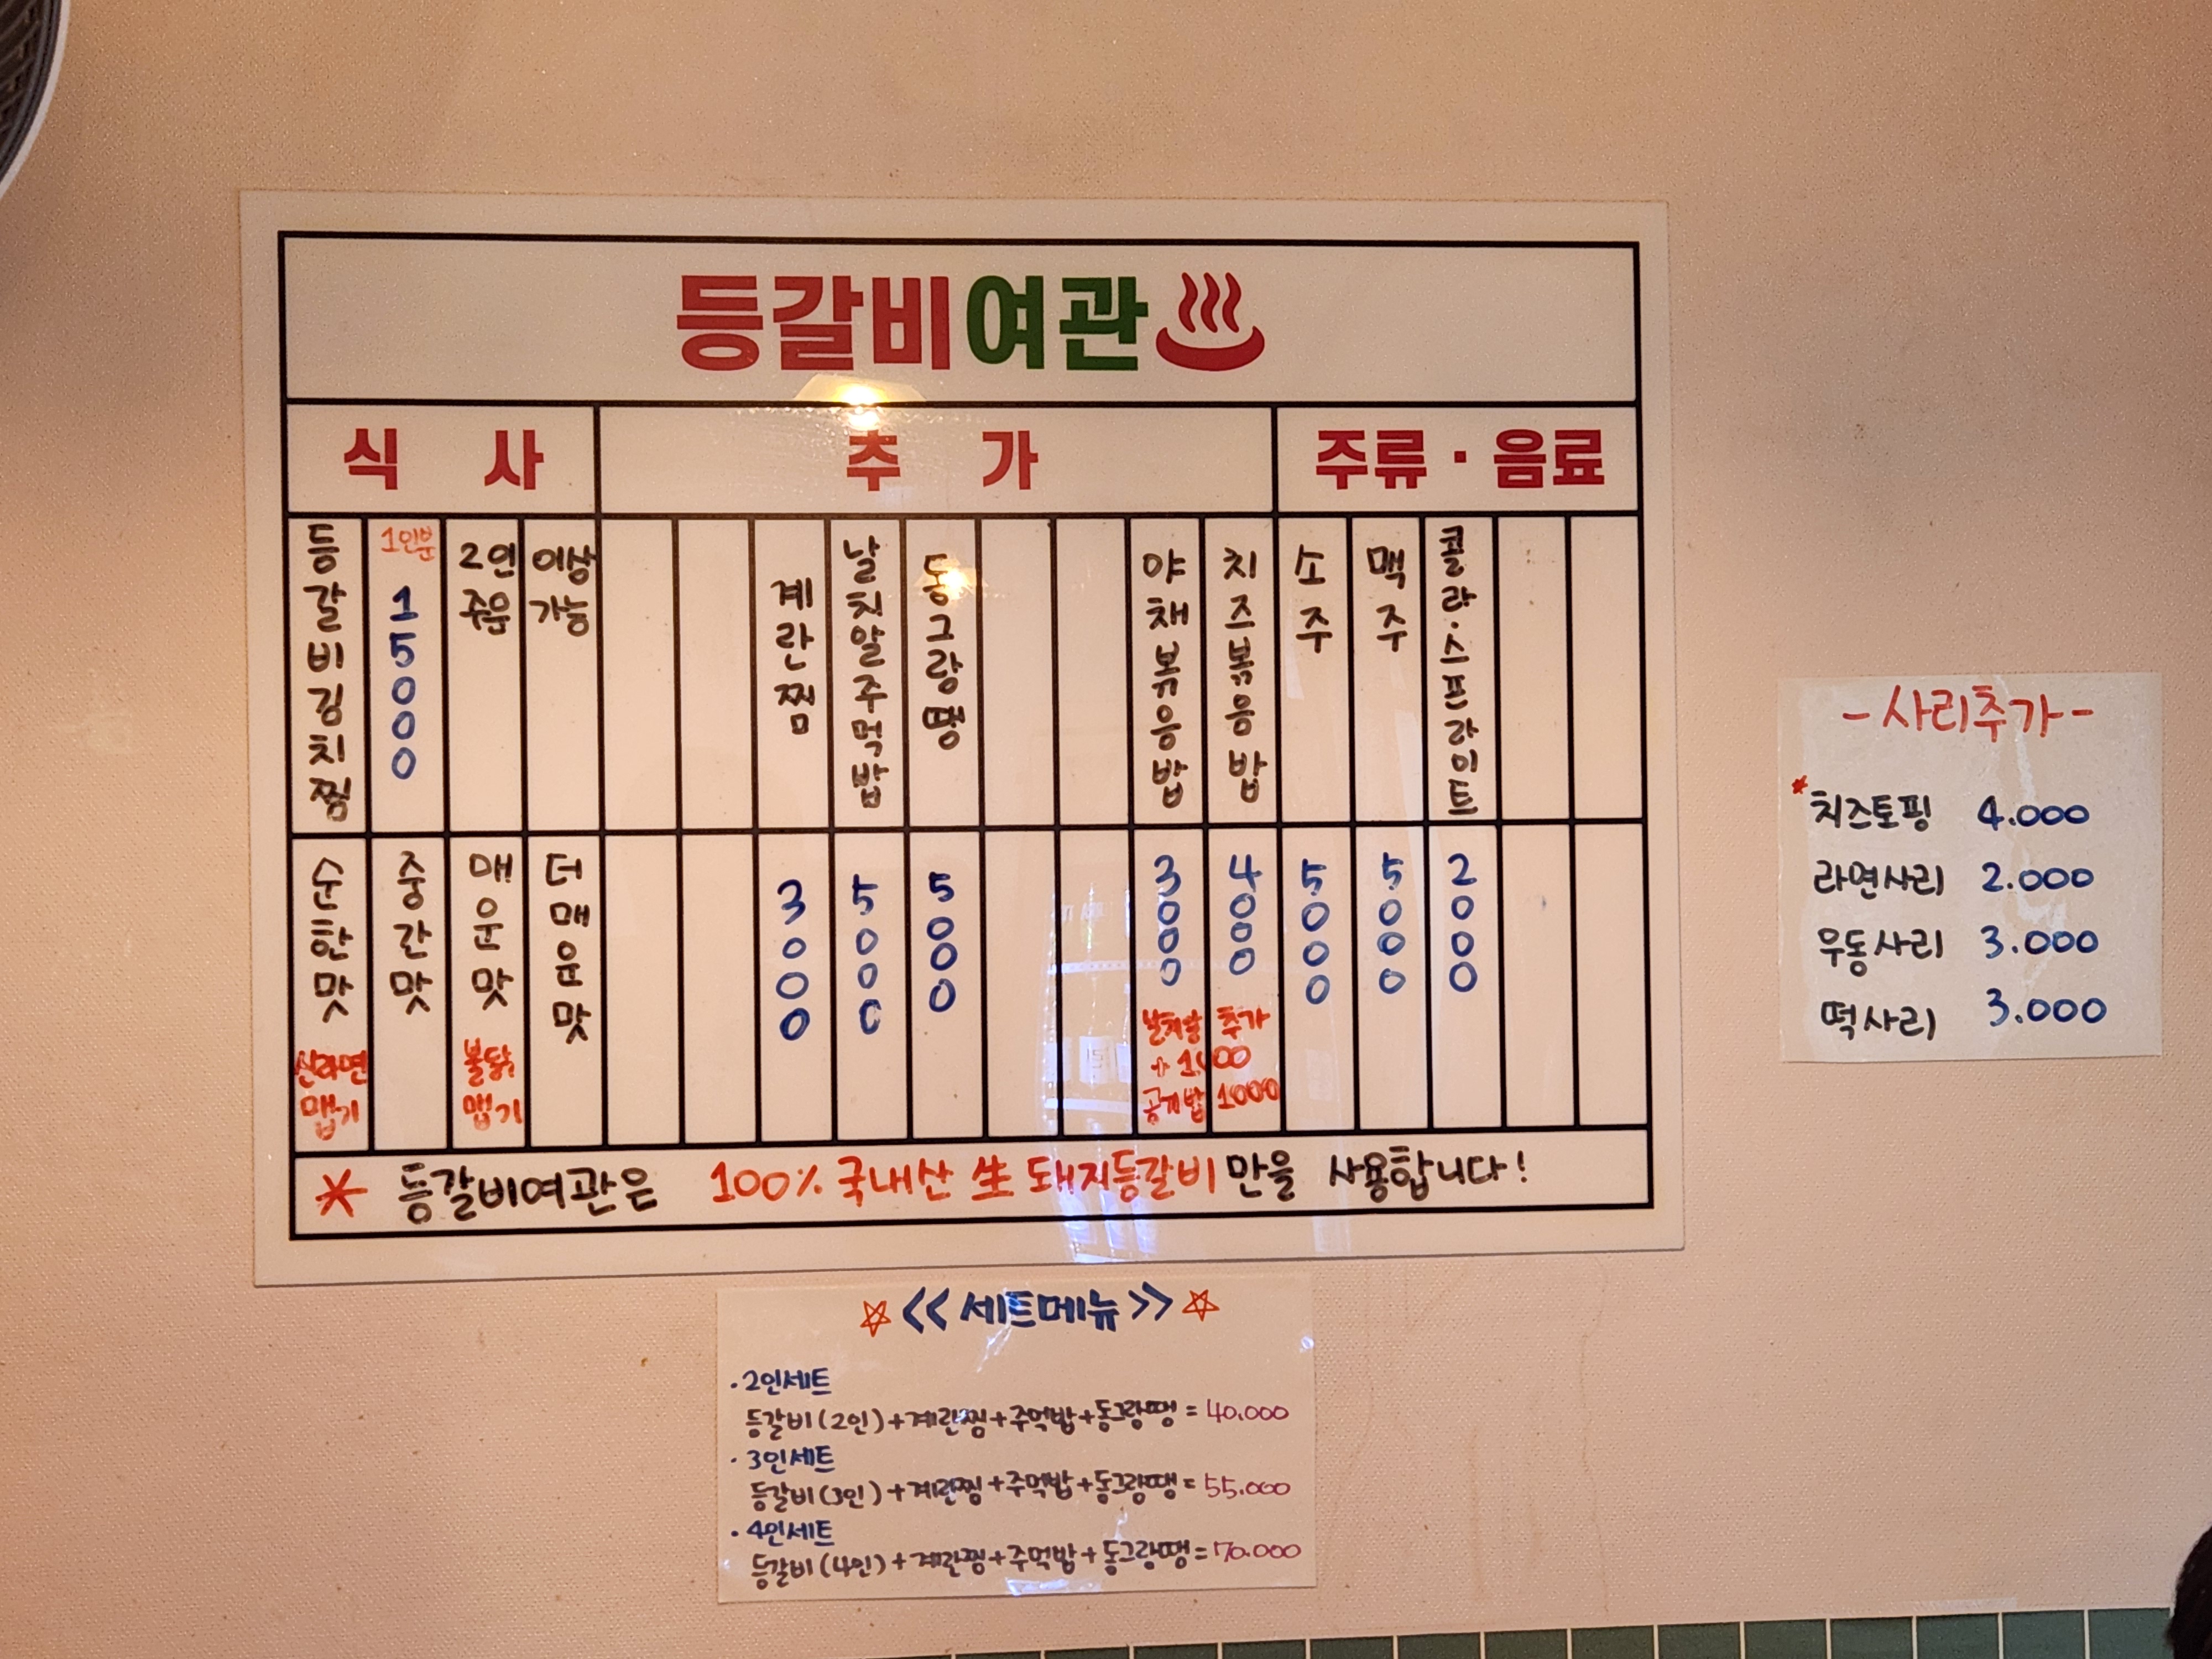 등갈비여관
식 사
추 가
주류·음료
등갈비김치찜
1인분
15000
2인 이상
주문 가능
계란찜
날치알주먹밥
동그랑땡
야채볶음밥
치즈볶음밥
소주
맥주
콜라·스프라이트
순한맛
신라면
맵기
중간맛
매운맛
불닭
맵기
더매운맛
3000
5000
5000
3000
4000
날치알 추가
+1000
공기밥 1000
5000
5000
2000
* 등갈비여관은 100% 국내산 生 돼지등갈비만을 사용합니다!
-사리추가-
*치즈토핑 4.000
라면사리 2.000
우동사리 3.000
떡사리 3.000
☆<<세트메뉴>>☆
·2인세트
등갈비(2인)+계란찜+주먹밥+동그랑땡=40.000
·3인세트
등갈비(3인)+계란찜+주먹밥+동그랑땡=55.000
·4인세트
등갈비(4인)+계란찜+주먹밥+동그랑땡=70.000